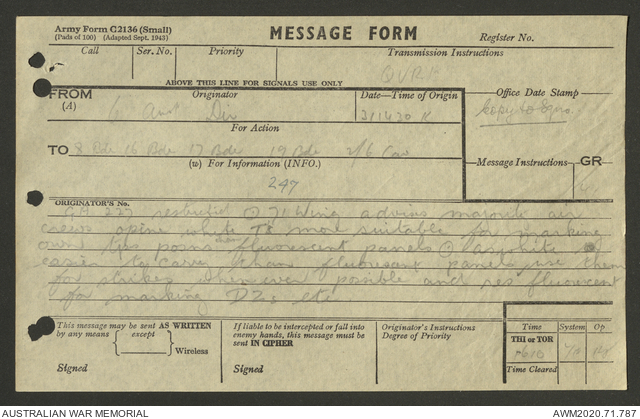 Army Form C2136 (Small)
(Pads of 100) (Adapted Sept. 1943)
MESSAGE FORM
Register No.
Call Ser. No. Priority Transmission Instructions
ABOVE THIS LINE FOR SIGNALS USE ONLY
FROM Originator Date—Time of Origin Office Date Stamp
(A) 6 Aust Div 211420 K
For Action
TO 8 Bde 16 Bde 17 Bde 19 Bde 2/6 Cav
(w) For Information (INFO.) Message Instructions GR
247
ORIGINATOR'S No.
227 restricted 71 Wing advise majority air
crews opine white Ts most suitable for marking
own tps posns fluorescent panels as white
easier to carry than fluorescent panels use them
for strikes whenever possible and res fluorescent
for marking DZs etc
This message may be sent AS WRITTEN
by any means except
Wireless
Signed
If liable to be intercepted or fall into
enemy hands, this message must be
sent IN CIPHER
Signed
Originator's Instructions
Degree of Priority
Time System Op
THI or TOR
Time Cleared
AUSTRALIAN WAR MEMORIAL AWM2020.71.787